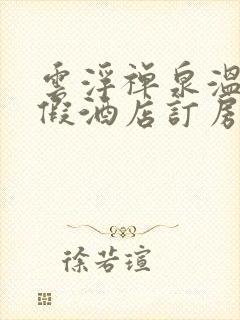 雲浮禪泉溫
假酒店訂房
徐若瑄